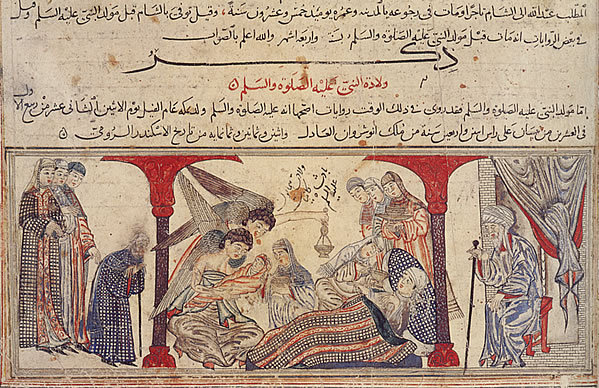 المطلب عبدالله الى الشام تاجرا ومات فى رجوعه بالمدينه وعمره يوميذ خمس وعشرون سنة وقيل توفى بالشام قبل مولد النبى عليه السلم وقيل
فى بعض الروايات انه مات قبل مولد النبى عليه الصلوة والسلم واربعة اشهر والله اعلم بالصواب
ذكر
ولادة النبى عليه الصلوة والسلم
اما مولد النبى عليه الصلوة والسلم فقد روى فى ذلك الوقت روايات اصحها انه عليه الصلوة والسلم ولد بمكه عام الفيل يوم الاثنين الثانى عشر من ربيع الاول
فى العشرين من نيسان على راس اثنين واربعين سنة من ملك انوشروان العادل واثنين وثمانين وثمانمايه من تاريخ الاسكندر الرومى